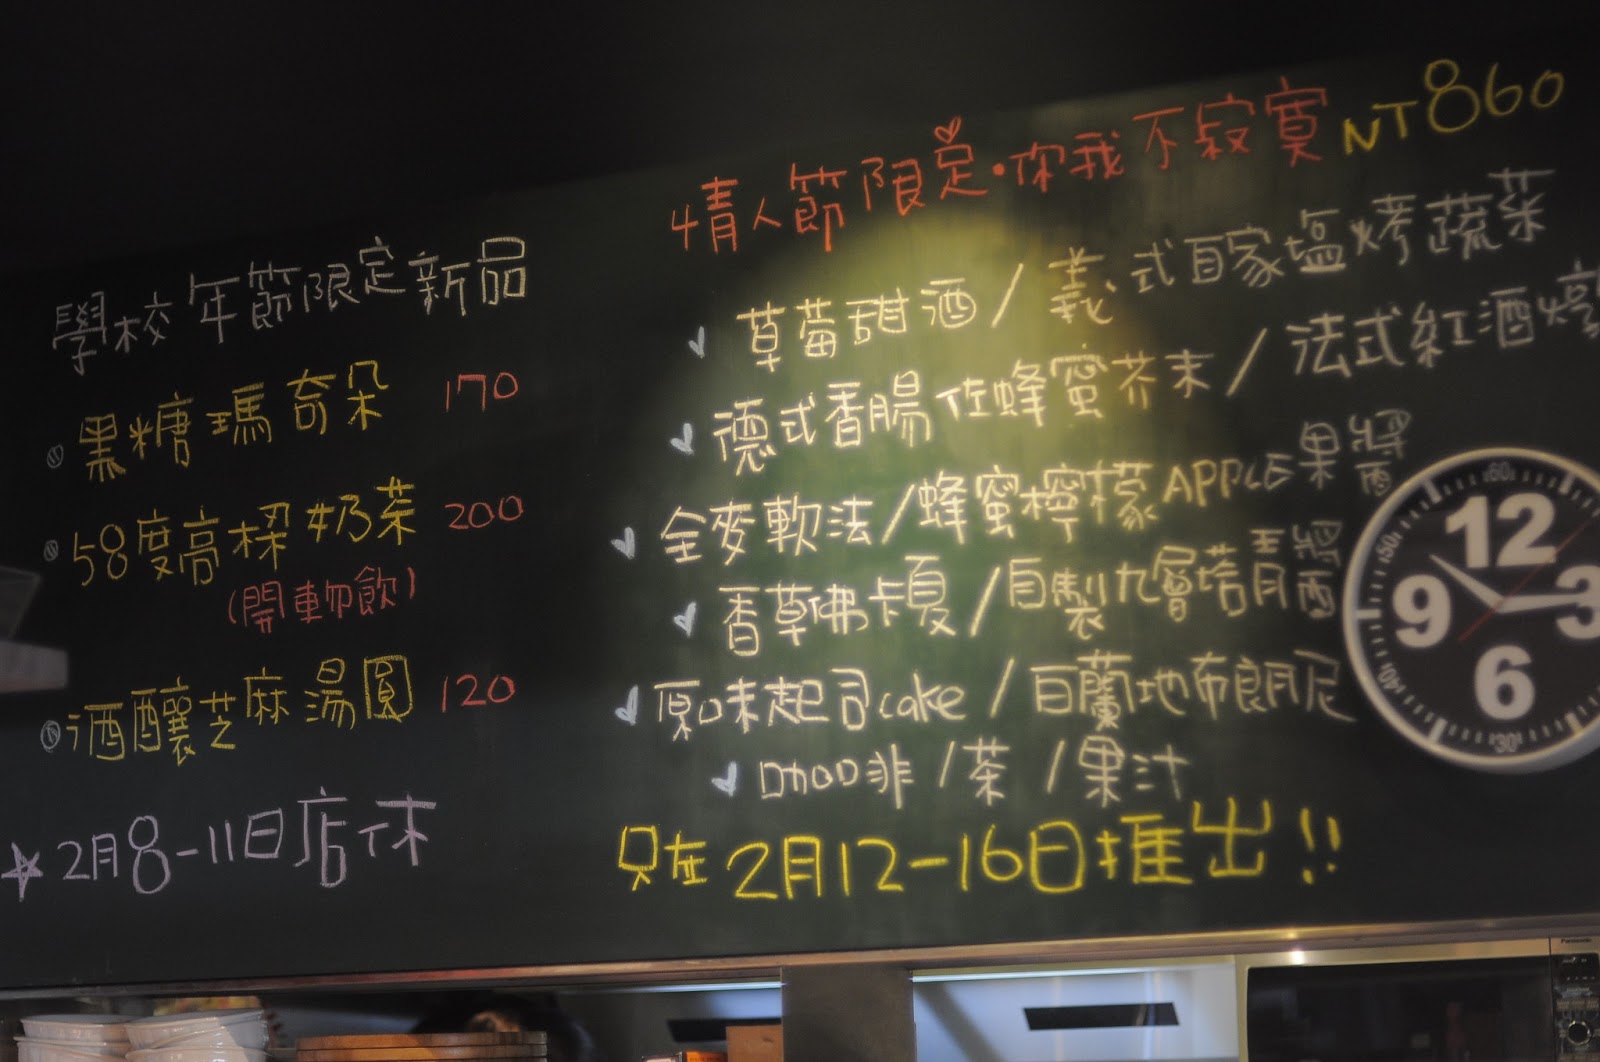 學校年節限定新品
黑糖瑪奇朵 170
58度高粱奶茶 200
(開車勿飲)
酒釀芝麻湯圓 120
2月8-11日店休
情人節限定·你我不寂寞 NT860
草莓甜酒/義式自家塩烤蔬菜
德式香腸佐蜂蜜芥末/法式紅酒燉
全麥軟法/蜂蜜檸檬APPLE果醬
香草佛卡夏/自製九層塔青醬
原味起司cake/百蘭地布朗尼
咖啡/茶/果汁
只在2月12-16日推出!!
60
12
50
3
9
6
40
30
Panasonic